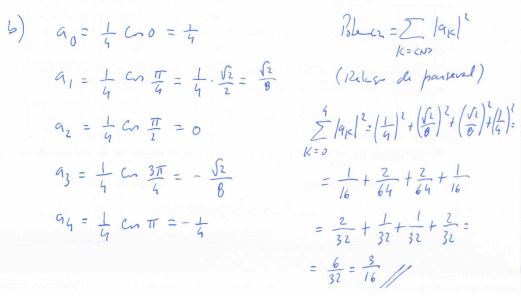 b) a₀ = 1/4 cos 0 = 1/4
a₁ = 1/4 cos π/4 = 1/4 · √2/2 = √2/8
a₂ = 1/4 cos π/2 = 0
a₃ = 1/4 cos 3π/4 = - √2/8
a₄ = 1/4 cos π = - 1/4
= ∑ |aₖ|²
K=<N>
de parseval)
∑ |aₖ|² = (1/4)² + (√2/8)² + (√2/8)² + (1/4)² =
4
K=0
= 1/16 + 2/64 + 2/64 + 1/16
= 2/32 + 1/32 + 1/32 + 2/32 =
= 6/32 = 3/16 //